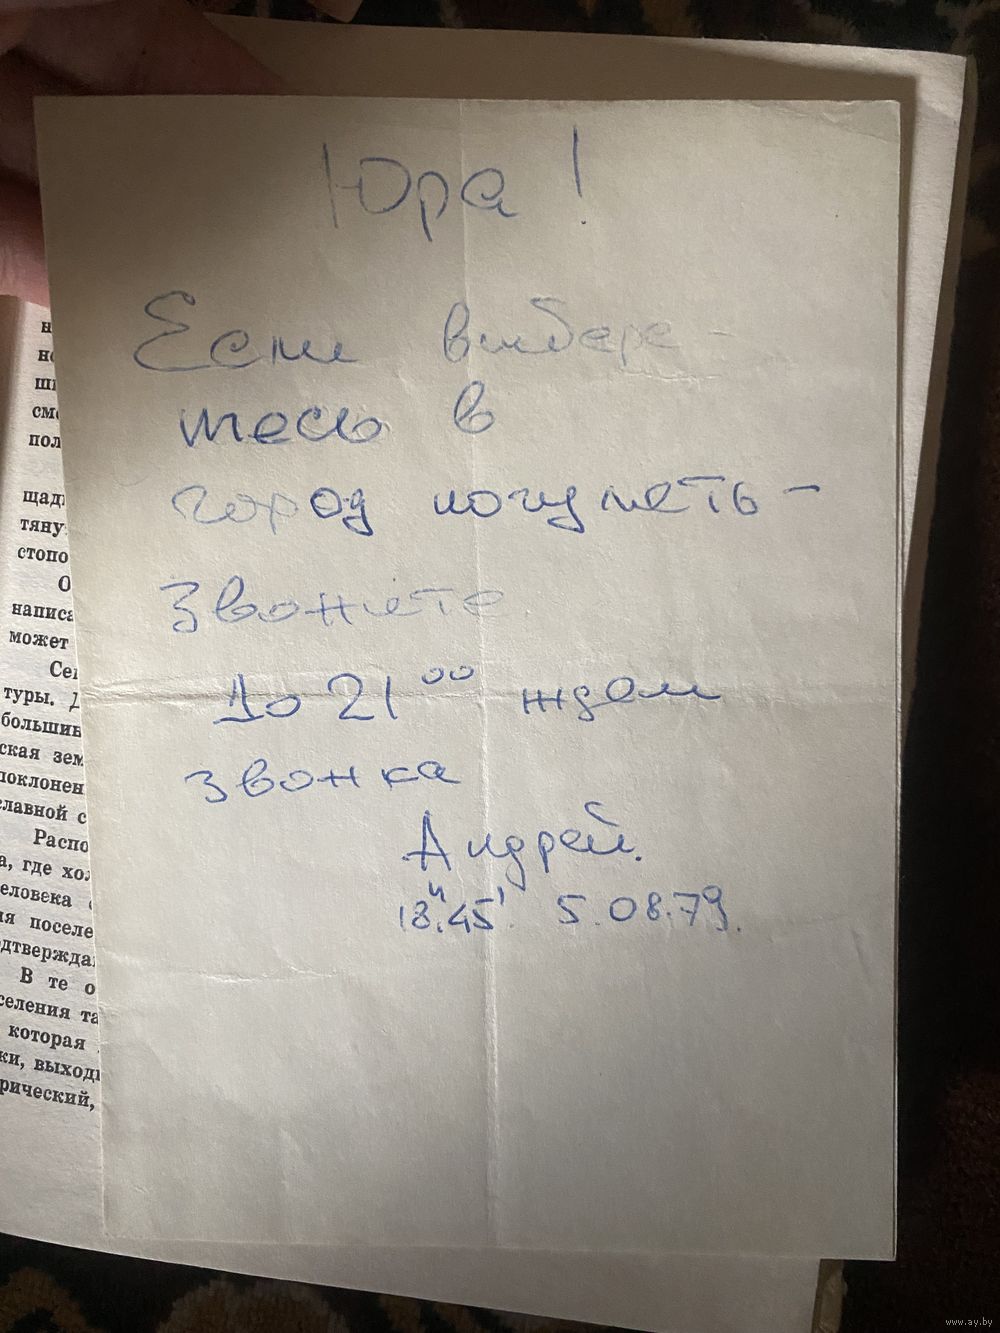 Юра!
Если выбере-
тесь в
город погулять -
звоните.
До 21⁰⁰ ждем
звонка
Андрей.
18ч.45'. 5.08.79.
щад
тяну
стопо
О
написа
может
Сеп
туры. Д
большив
ская зем
поклонен
славной с
Распо
а, где хо
еловека
ия поселе
одтвержда
В те о
селения та
которая
ки, выходи
рический,
www.ay.by